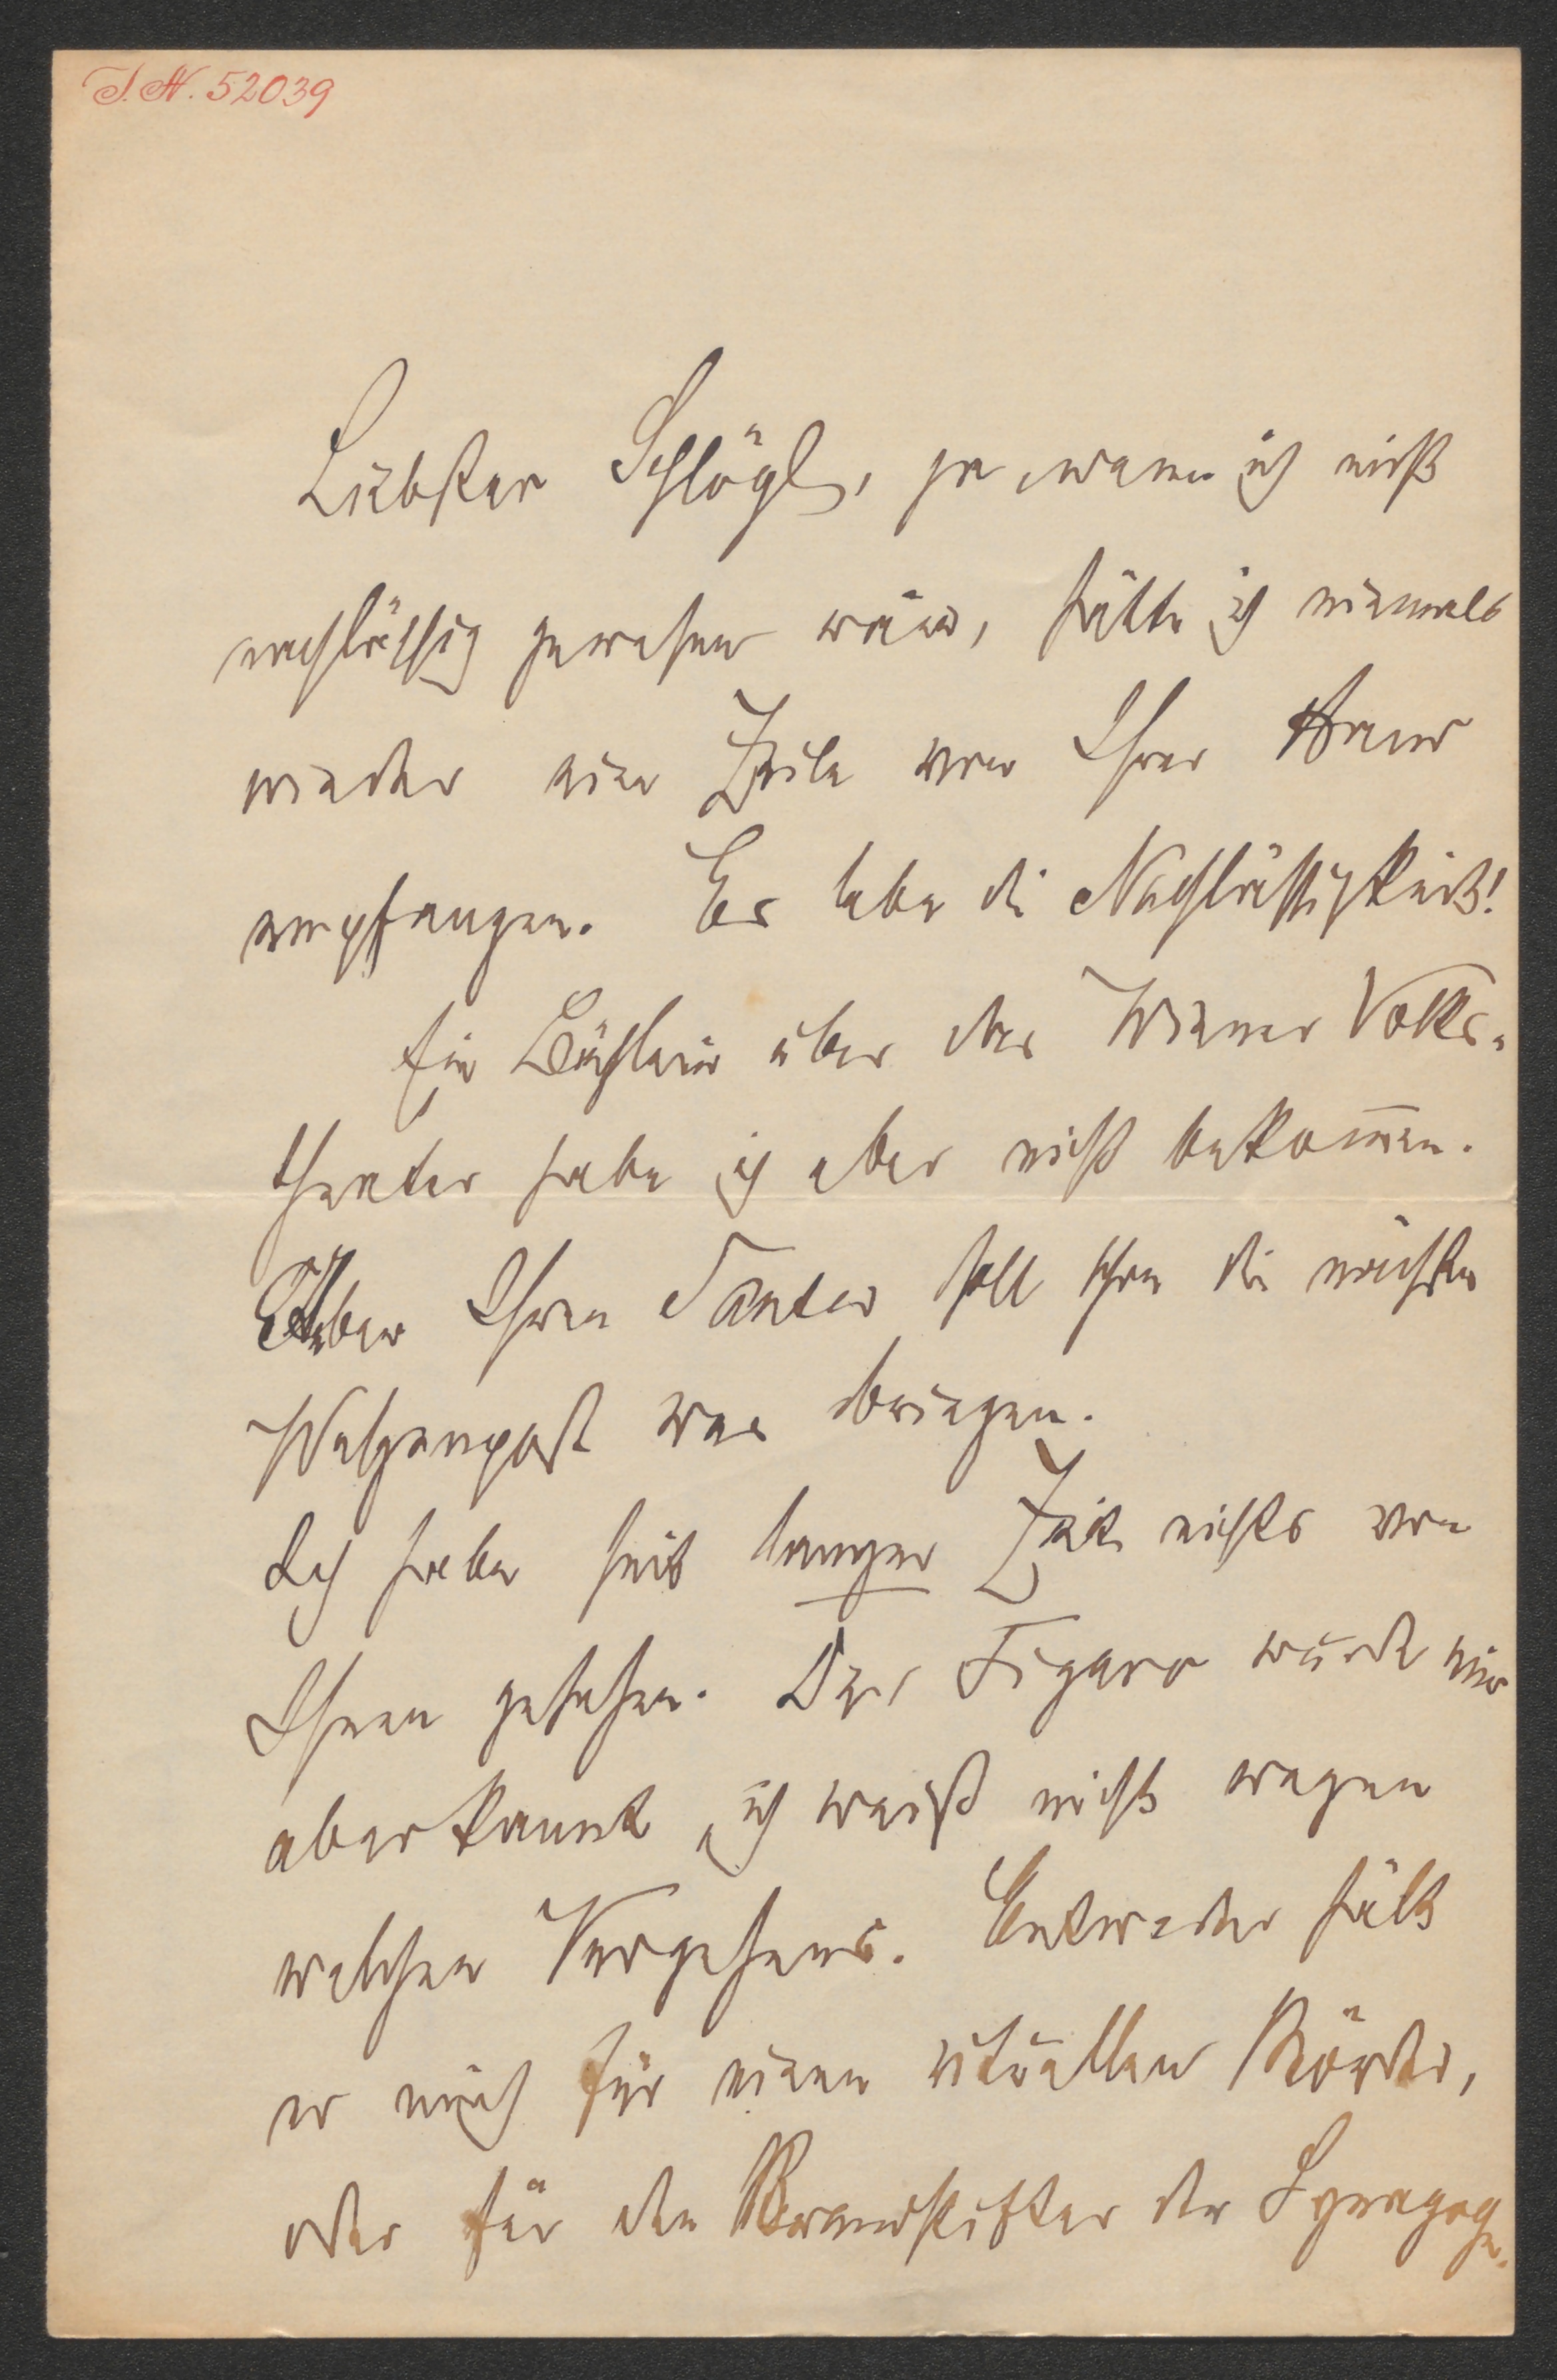 I. N. 52039
Liebster Schlögl, ja wenn ich nicht
nachlässig gewesen wäre, hätte ich niemals
wieder eine Zeile von Ihrer Hand
empfangen. Es lebe die Nachlässigkeit!
Ein Büchlein über das Wiener Volks-
theater habe ich aber nicht bekommen.
Ueber Ihren soll schon die nächste
was bringen.
Ich habe seit langer Zeit nichts von
Ihnen gesehen. Der Figaro wurde mir
aberkannt, ich weiß nicht wegen
welchen Vergehens. Entweder hält
er mich für einen rituellen Mörder,
oder für den Brandstifter der Synagoge.